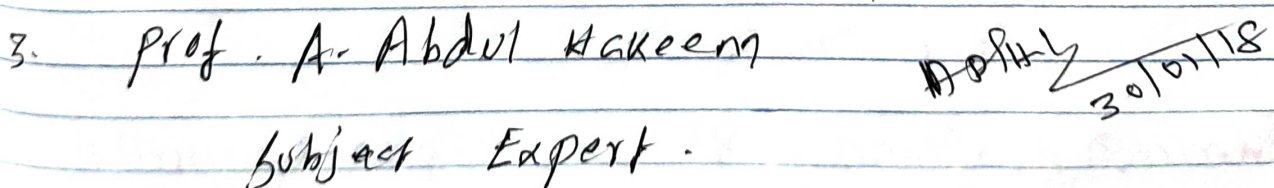 3. Prof. A. Abdul Hakeem 30/01/18
Subject Expert.